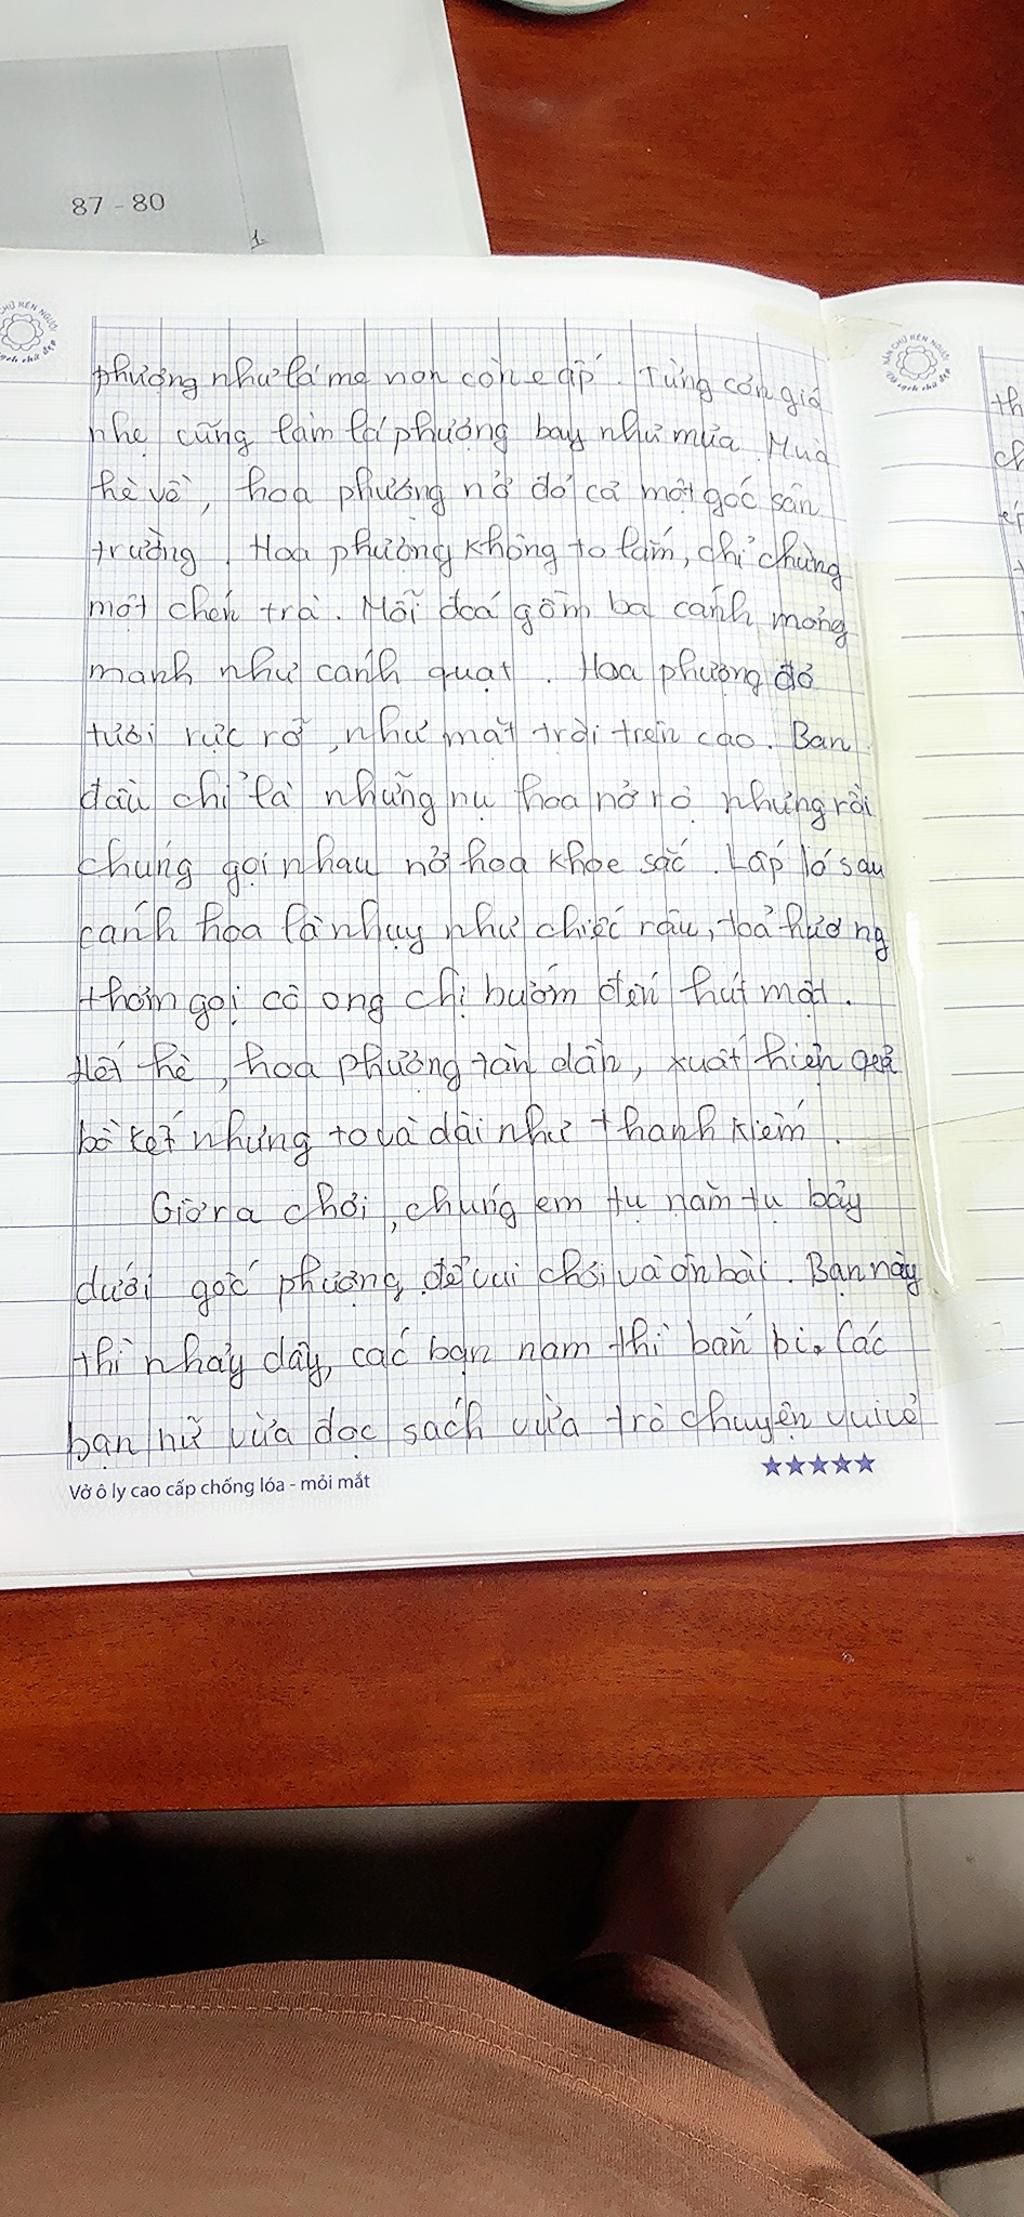 87 - 80
1
phượng như lá me non còn e ấp. Từng cơn gió
nhẹ cũng làm lá phượng bay như mưa. Mùa
hè về, hoa phượng nở đỏ cả một góc sân
trường. Hoa phượng không to lắm, chỉ chừng
một chén trà. Mỗi đoá gồm ba cánh mỏng
manh như cánh quạt. Hoa phượng đỏ
tươi rực rỡ, như mặt trời trên cao. Ban
đầu chỉ là những nụ hoa nở rộ nhưng rồi
chúng gọi nhau nở hoa khoe sắc. Lấp ló sau
cánh hoa là nhụy như chiếc râu, toả hương
thơm gọi cô ong chị bướm đến hút mật.
Hết hè, hoa phượng tàn dần, xuất hiện quả
bồ kết nhưng to và dài như thanh kiếm.
Giờ ra chơi, chúng em tụ năm tụ bảy
dưới gốc phượng để vui chơi và ôn bài. Bạn này
thì nhảy dây, các bạn nam thì bắn bi. Các
bạn nữ vừa đọc sách vừa trò chuyện vui vẻ
Vở ô ly cao cấp chống lóa - mỏi mắt